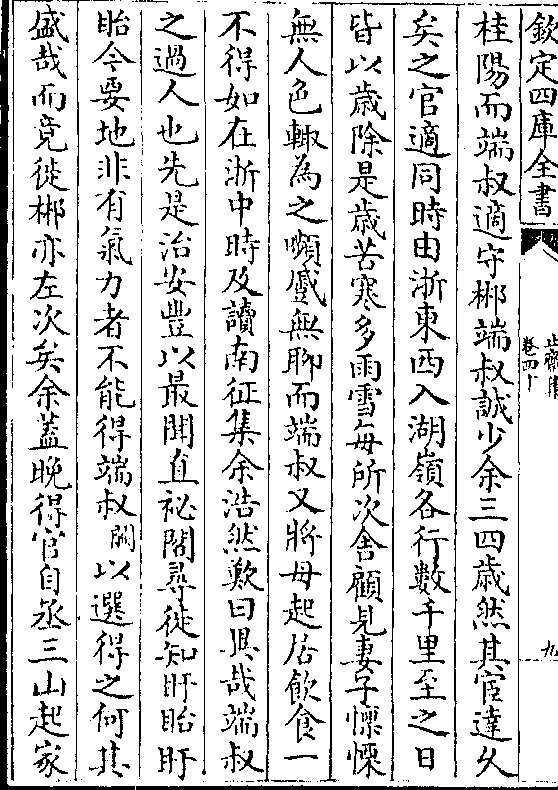 欽定四庫全書
止齋集
卷四十
九
桂陽而端叔適守郴端叔誠少余三四歳然其宦達久
矣之官適同時由浙東西入湖嶺各行數千里至之日
皆以歳除是歳苦寒多雨雪每所次舍顧見妻子慄慄
無人色輒為之嚬蹙無聊而端叔又將母起居飲食一
不得如在浙中時及讀南征集余浩然歎曰異哉端叔
之過人也先是治安豐以最聞直祕閣尋徙知盱眙盱
眙今要地非有氣力者不能得端叔闕以選得之何其
盛哉而竟徙郴亦左次矣余蓋晚得官自丞三山起家